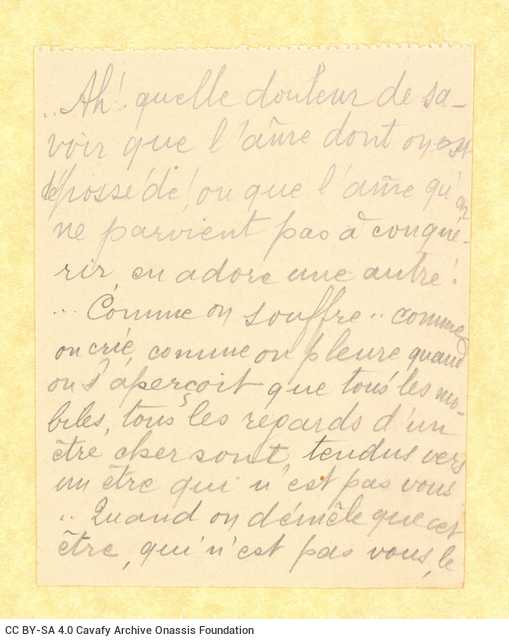 ..Ah! quelle douleur de sa-
voir que l'âme dont on est
dépossédé, ou que l'âme qu'on
ne parvient pas à conqué-
rir, en adore une autre!
... Comme on souffre .. comme
on crie, comme on pleure quand
on s'aperçoit que tous les mo-
biles, tous les regards d'un
être cher sont tendus vers
un être qui n'est pas vous
.. Quand on démêle que cet
être, qui n'est pas vous, le
CC BY-SA 4.0 Cavafy Archive Onassis Foundation